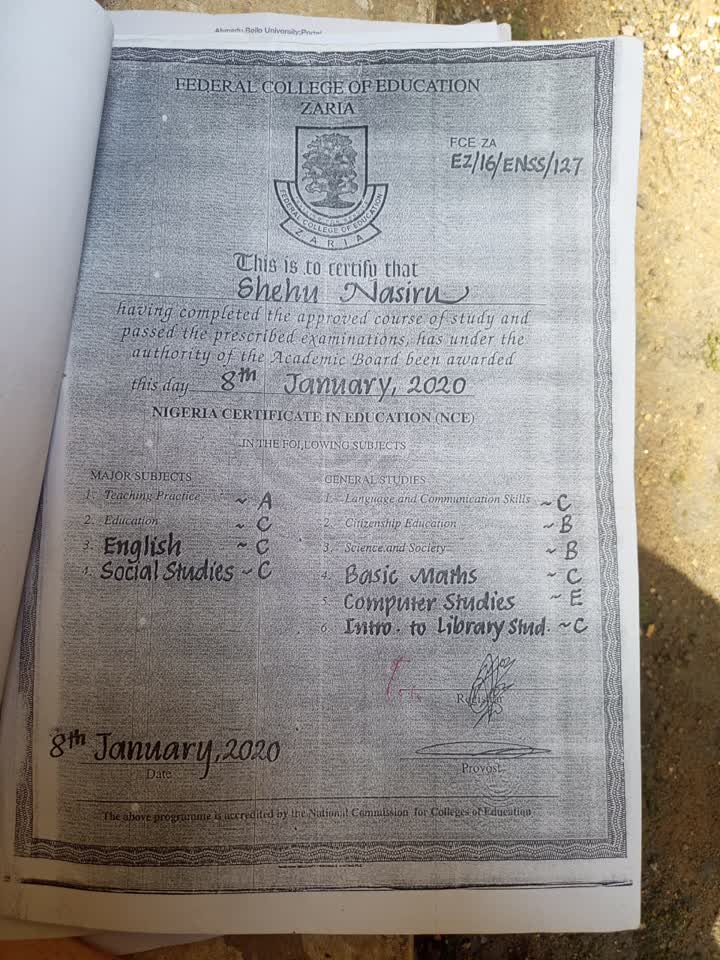 Ahmadu Bello University:Portal
FEDERAL COLLEGE OF EDUCATION
ZARIA
FCE ZA
EZ/16/ENSS/127
FEDERAL COLLEGE OF EDUCATION
ZARIA
This is to certify that
Shehu Nasiru
having completed the approved course of study and
passed the prescribed examinations, has under the
authority of the Academic Board been awarded
this day 8th January, 2020
NIGERIA CERTIFICATE IN EDUCATION (NCE)
IN THE FOLLOWING SUBJECTS
MAJOR SUBJECTS
1. Teaching Practice ~ A
2. Education ~ C
3. English ~ C
4. Social Studies ~ C
GENERAL STUDIES
1. Language and Communication Skills ~ C
2. Citizenship Education ~ B
3. Science and Society ~ B
4. Basic Maths ~ C
5. Computer Studies ~ E
6. Intro. to Library Stud. ~ C
Registrar
8th January, 2020
Date
Provost
The above programme is accredited by the National Commission for Colleges of Education